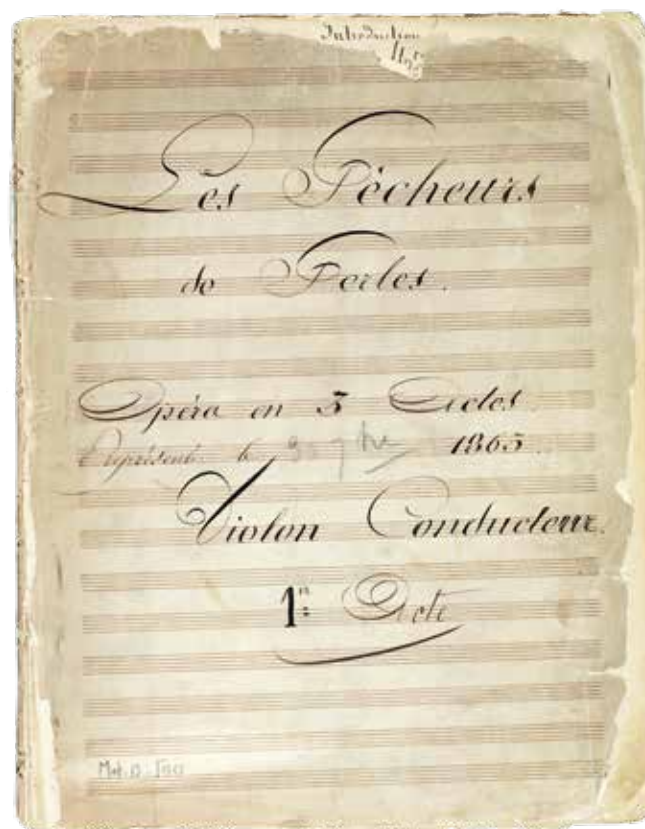 Introduction
Les Pêcheurs
de Perles.
Opéra en 3 Actes.
Représenté le 30 7bre 1863.
Violon Conducteur.
1er Acte
Mat.